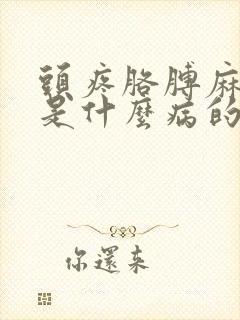 頭疼胳膊麻
是什麼病的
你還來